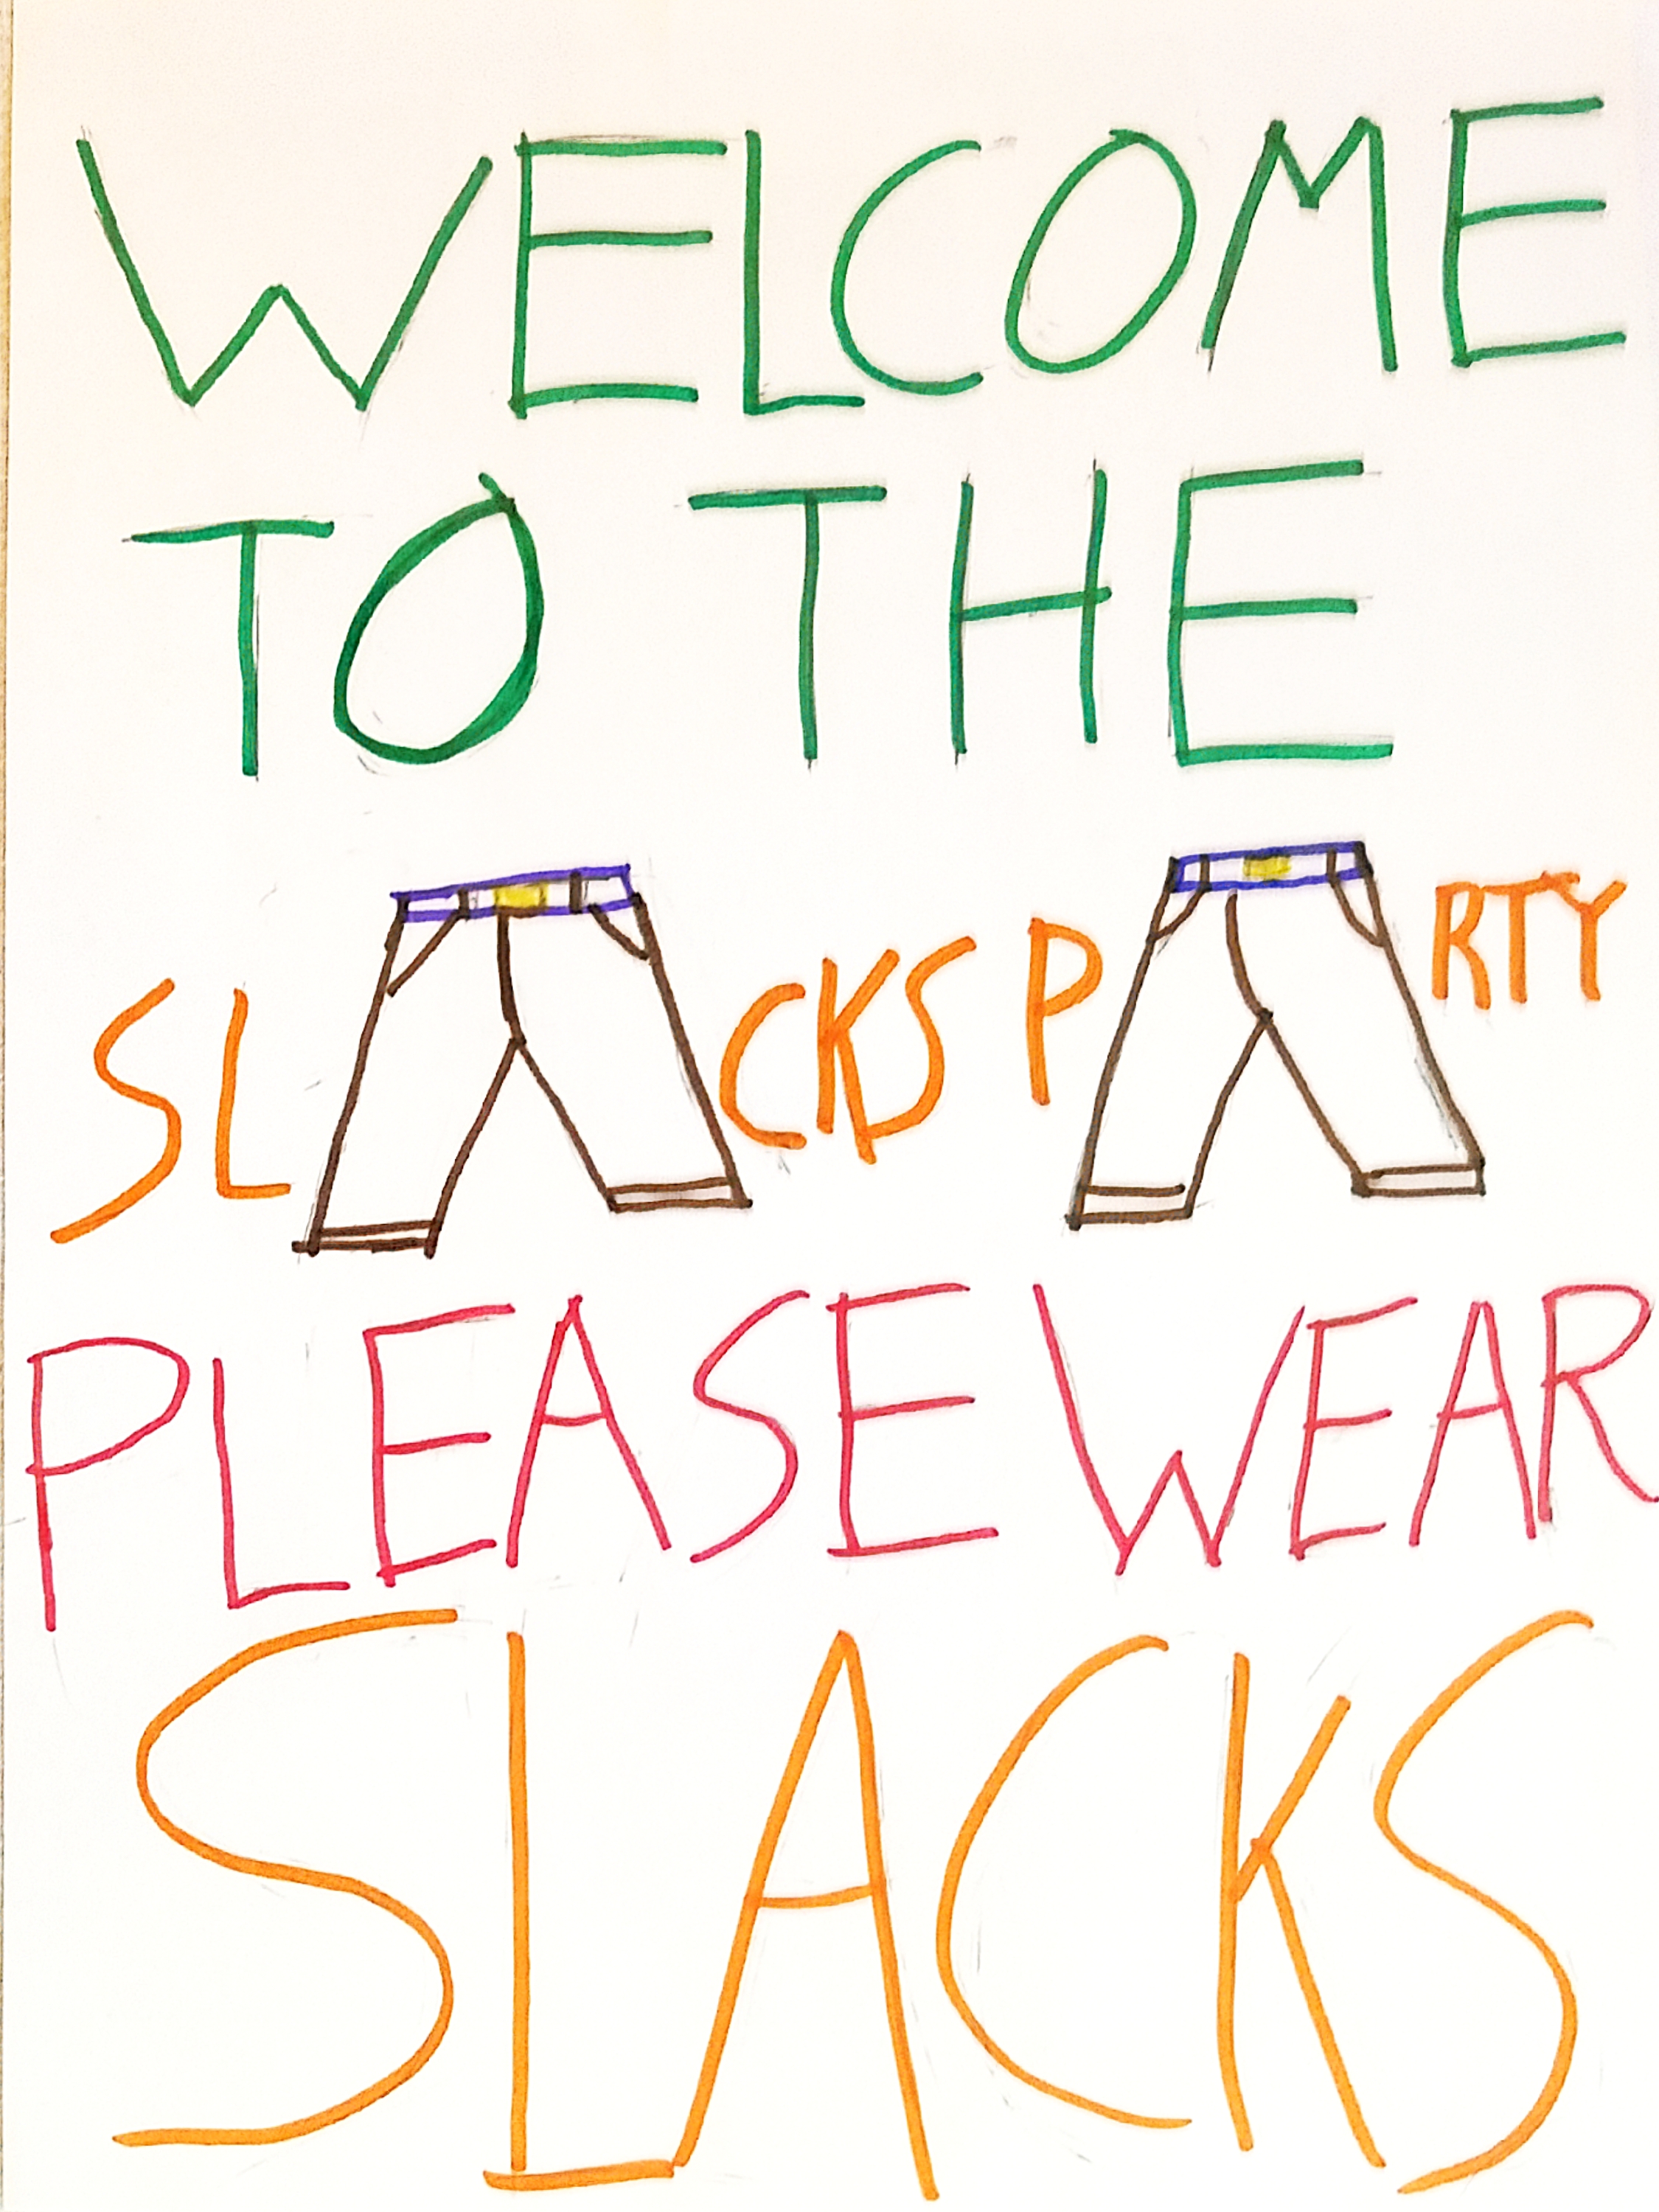 WELCOME
TO THE
SLACKS PARTY
PLEASE WEAR
SLACKS